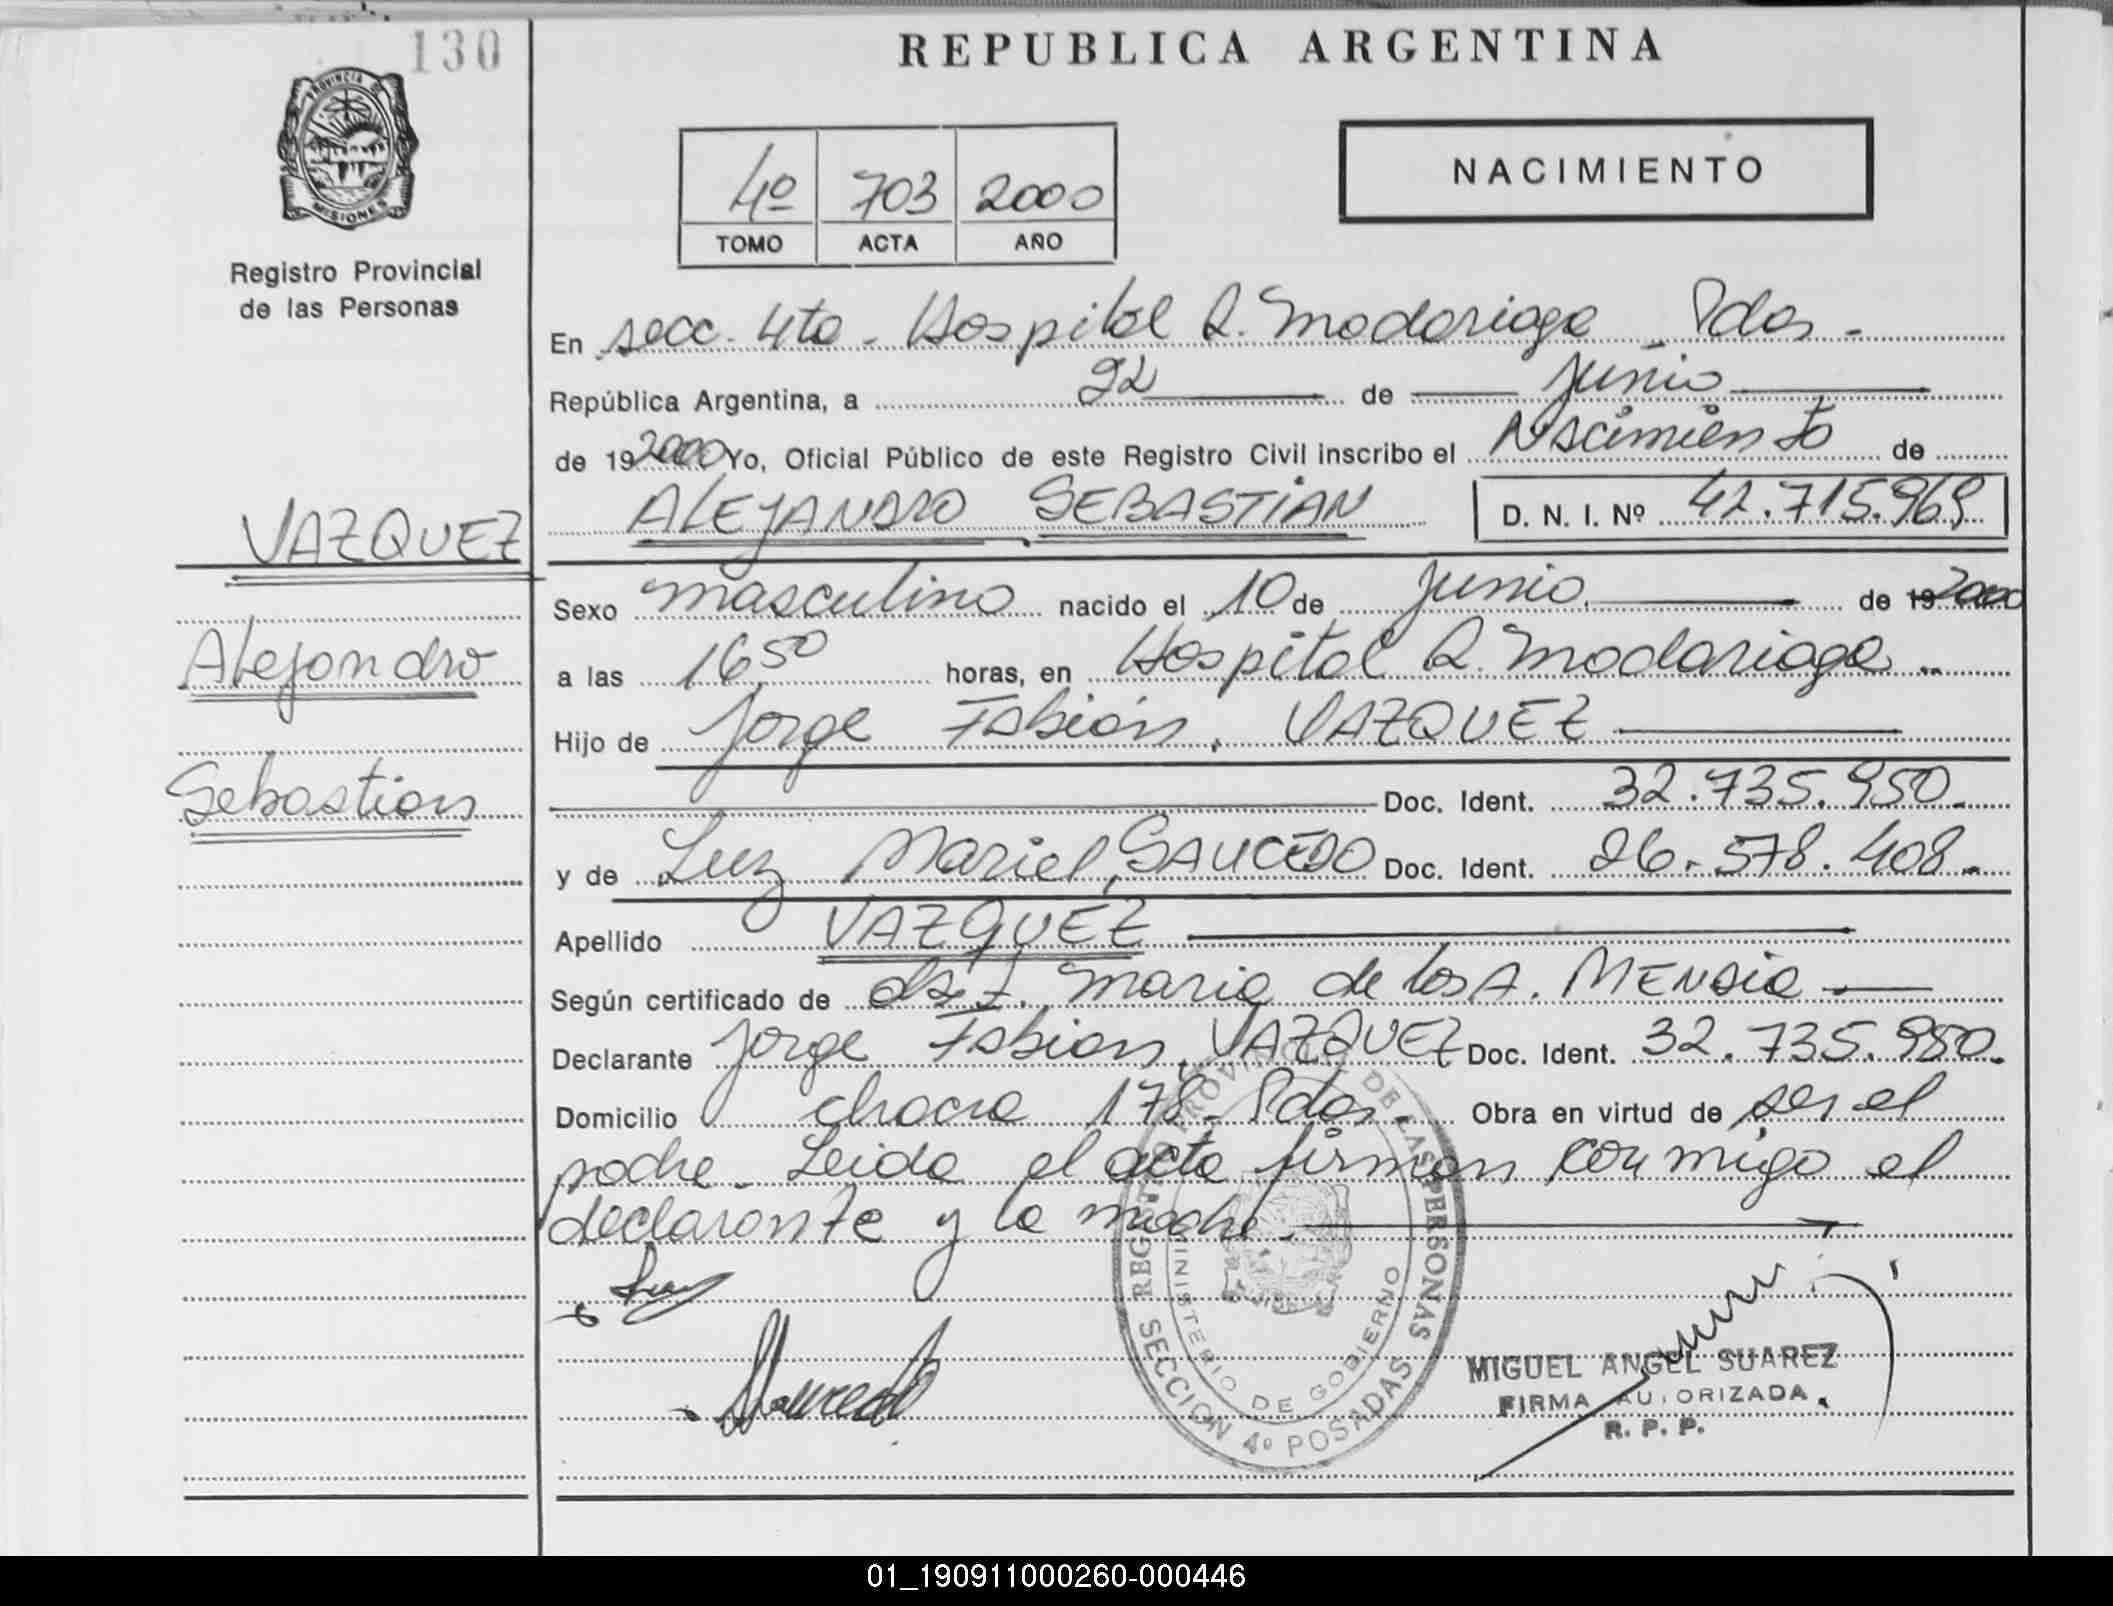 130
REPUBLICA ARGENTINA
PROVINCIA DE
MISIONES
Registro Provincial
de las Personas
4º 703 2000
TOMO ACTA AÑO
NACIMIENTO
En secc. 4ta - Hospital R. Madariaga Pdas -
República Argentina, a 22 de Junio
de 19 2000 Yo, Oficial Público de este Registro Civil inscribo el Nacimiento de
VAZQUEZ
ALEJANDRO SEBASTIAN D. N. I. Nº 42.715.969
Sexo masculino nacido el 10 de Junio de 19 2000
Alejandro
a las 16,50 horas, en Hospital R. Madariaga
Hijo de Jorge Fabián, VAZQUEZ
Sebastian
Doc. Ident. 32.735.950.
y de Luz Mariel, SAUCEDO Doc. Ident. 26.578.408.
Apellido VAZQUEZ
Según certificado de María de los A. MENDIA
Declarante Jorge Fabian, VAZQUEZ Doc. Ident. 32.735.950.
Domicilio chacra 178 - Pdas. Obra en virtud de ser el
padre. Leída el acta firman conmigo el
declarante y la madre.
REGISTRO PROVINCIAL DE LAS PERSONAS
MINISTERIO DE GOBIERNO
SECCION 4º POSADAS
Saucedo
MIGUEL ANGEL SUAREZ
FIRMA AUTORIZADA
R. P. P.
01_190911000260-000446